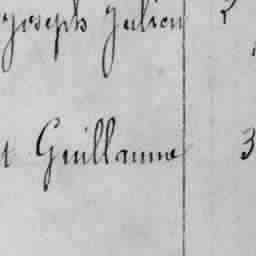 Joseph Julien
Guillaume 3